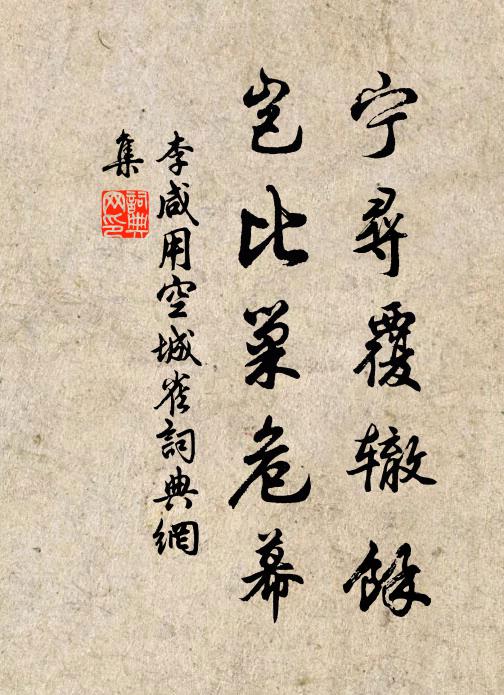 宁寻覆辙馀
岂比巢危幕
李咸用空城雀詞典網
集
詞典
网印